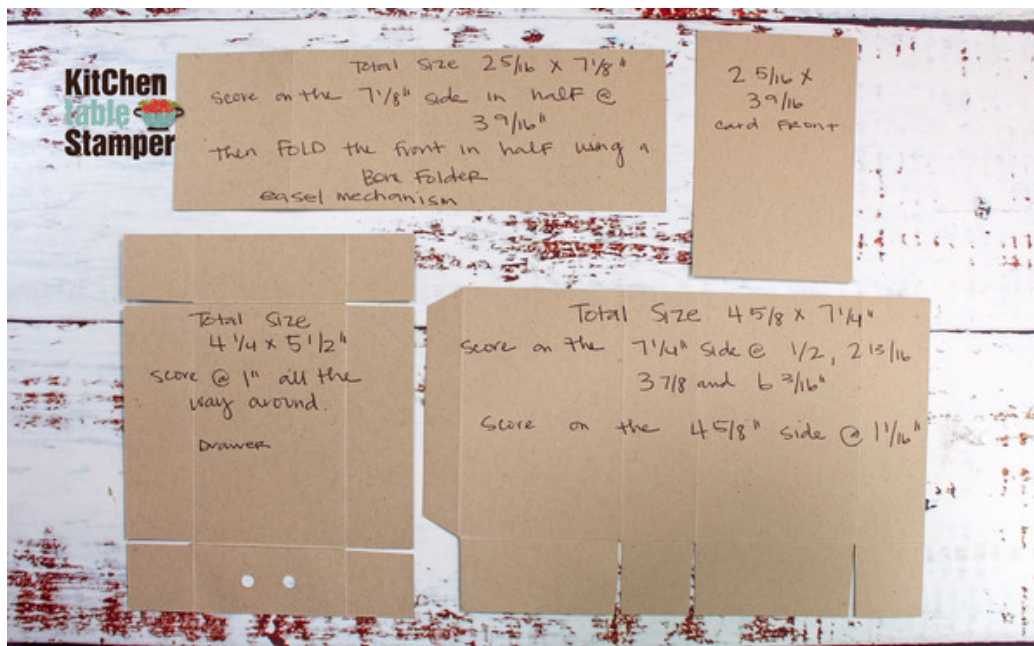 KitChen
Table
Stamper
Total Size 2 5/16 X 7 1/8"
score on the 7 1/8" side in half @
3 9/16"
then FOLD the front in half using a
Bone Folder
easel mechanism
2 5/16 x
3 9/16
card Front
Total Size
4 1/4 x 5 1/2"
score @ 1" all the
way around.
Drawer
Total Size 4 5/8 x 7 1/4"
score on the 7 1/4" side @ 1/2, 2 13/16
3 7/8 and 6 3/16"
score on the 4 5/8" side @ 1 1/16"